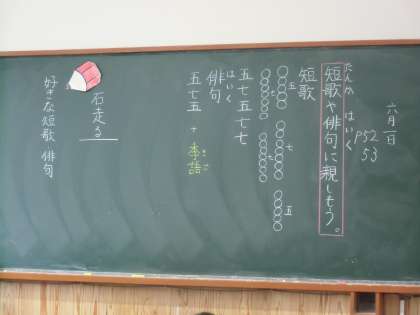 六月一日
P52
53
たんか はいく
短歌や俳句に親しもう。
五 七 五
七 七
短歌
五七五七七
はいく
俳句
五七五 + 季語
きご
石走る
好きな短歌 俳句